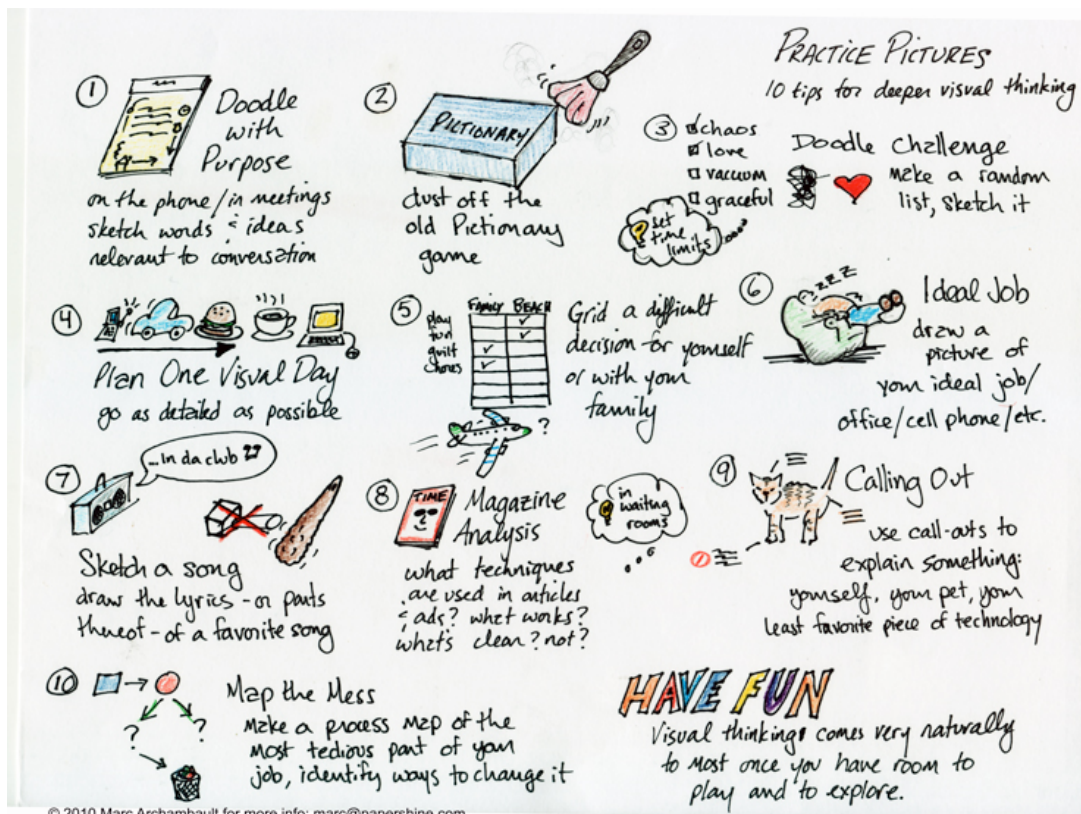 PRACTICE PICTURES
10 tips for deeper visual thinking
1
Doodle
with
Purpose
on the phone/in meetings
sketch words & ideas
relevant to conversation
2
PICTIONARY
dust off the
old Pictionary
game
3
chaos
love
vacuum
graceful
set
time
limits
Doodle Challenge
make a random
list, sketch it
4
Plan One Visual Day
go as detailed as possible
5
FAMILY BEACH
play
fun
guilt
chores
?
Grid a difficult
decision for yourself
or with your
family
6
zzz
Ideal Job
draw a
picture of
your ideal job/
office/cell phone/etc.
7
...in da club
or
Sketch a song
draw the lyrics - or parts
thereof - of a favorite song
8
TIME
Magazine
Analysis
what techniques
are used in articles
& ads? what works?
what's clear? not?
in
waiting
rooms
9
Calling Out
use call-outs to
explain something:
yourself, your pet, your
least favorite piece of technology
10
? ?
Map the Mess
make a process map of the
most tedious part of your
job, identify ways to change it
HAVE FUN
Visual thinking comes very naturally
to most once you have room to
play and to explore.
© 2010 Marc Archambault for more info: marc@papershine.com